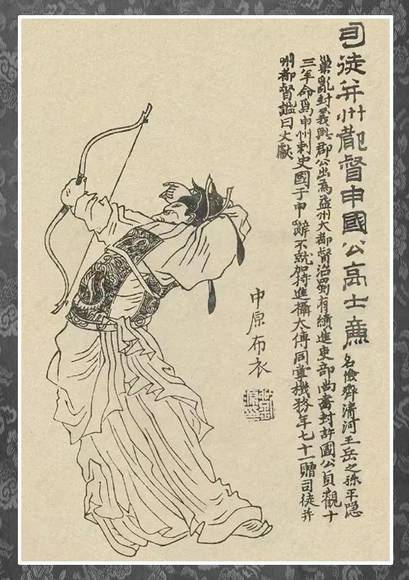 司徒并州都督申國公高士廉 名儉齊清河王岳之孫平隱
巢亂封義興郡公出爲益州大都督治蜀有績進吏部尚書封許國公貞觀十
三年命爲申州刺史國于申辭不就加特進攝太傅同掌機務年七十一贈司徒并
州都督謚曰文獻
中原布衣